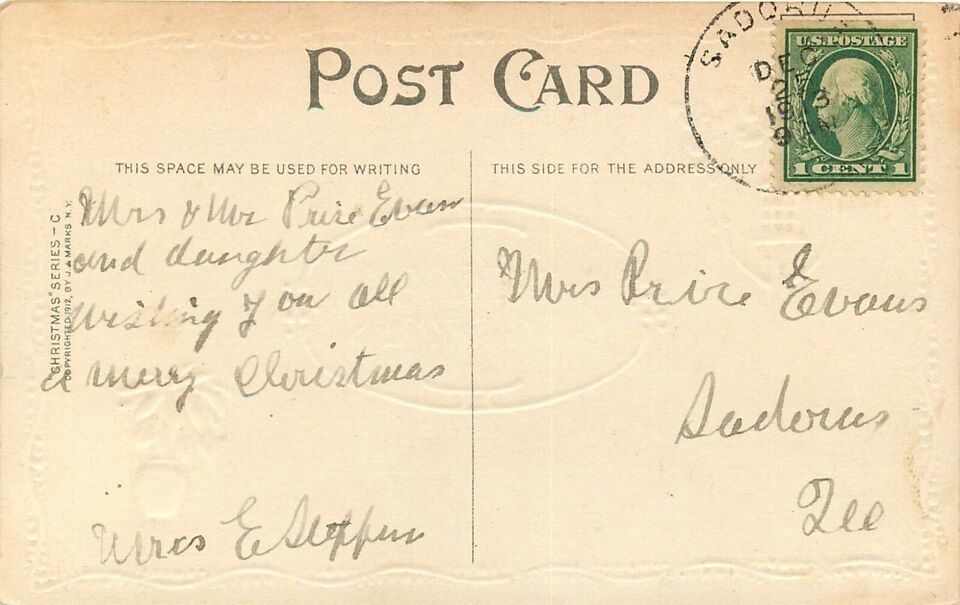 POST CARD
THIS SPACE MAY BE USED FOR WRITING
THIS SIDE FOR THE ADDRESS ONLY
SADORU
DEC
3
19
U.S. POSTAGE
1 CENT 1
"CHRISTMAS" SERIES - C
COPYRIGHTED 1912, BY J. MARKS N.Y.
Mrs & Mr Price Evans
and daughter
Wishing you all
a merry Christmas
Mrs E
Mrs Price Evans
Sadorus
Ill